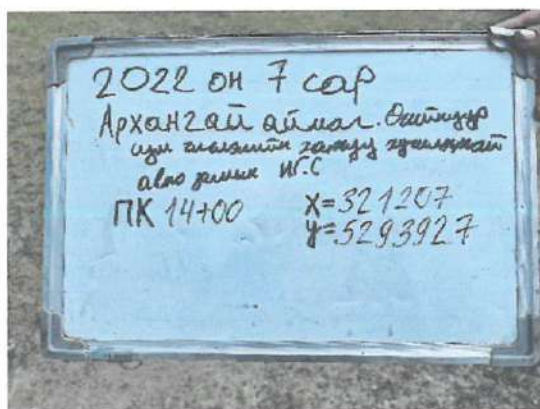 2022 он 7 сар
Архангай аймаг. Өгийнуур
сум чиглэлийн хатуу хучилттай
авто замын ИГС
ПК 14+00 X=321207
y=5293927